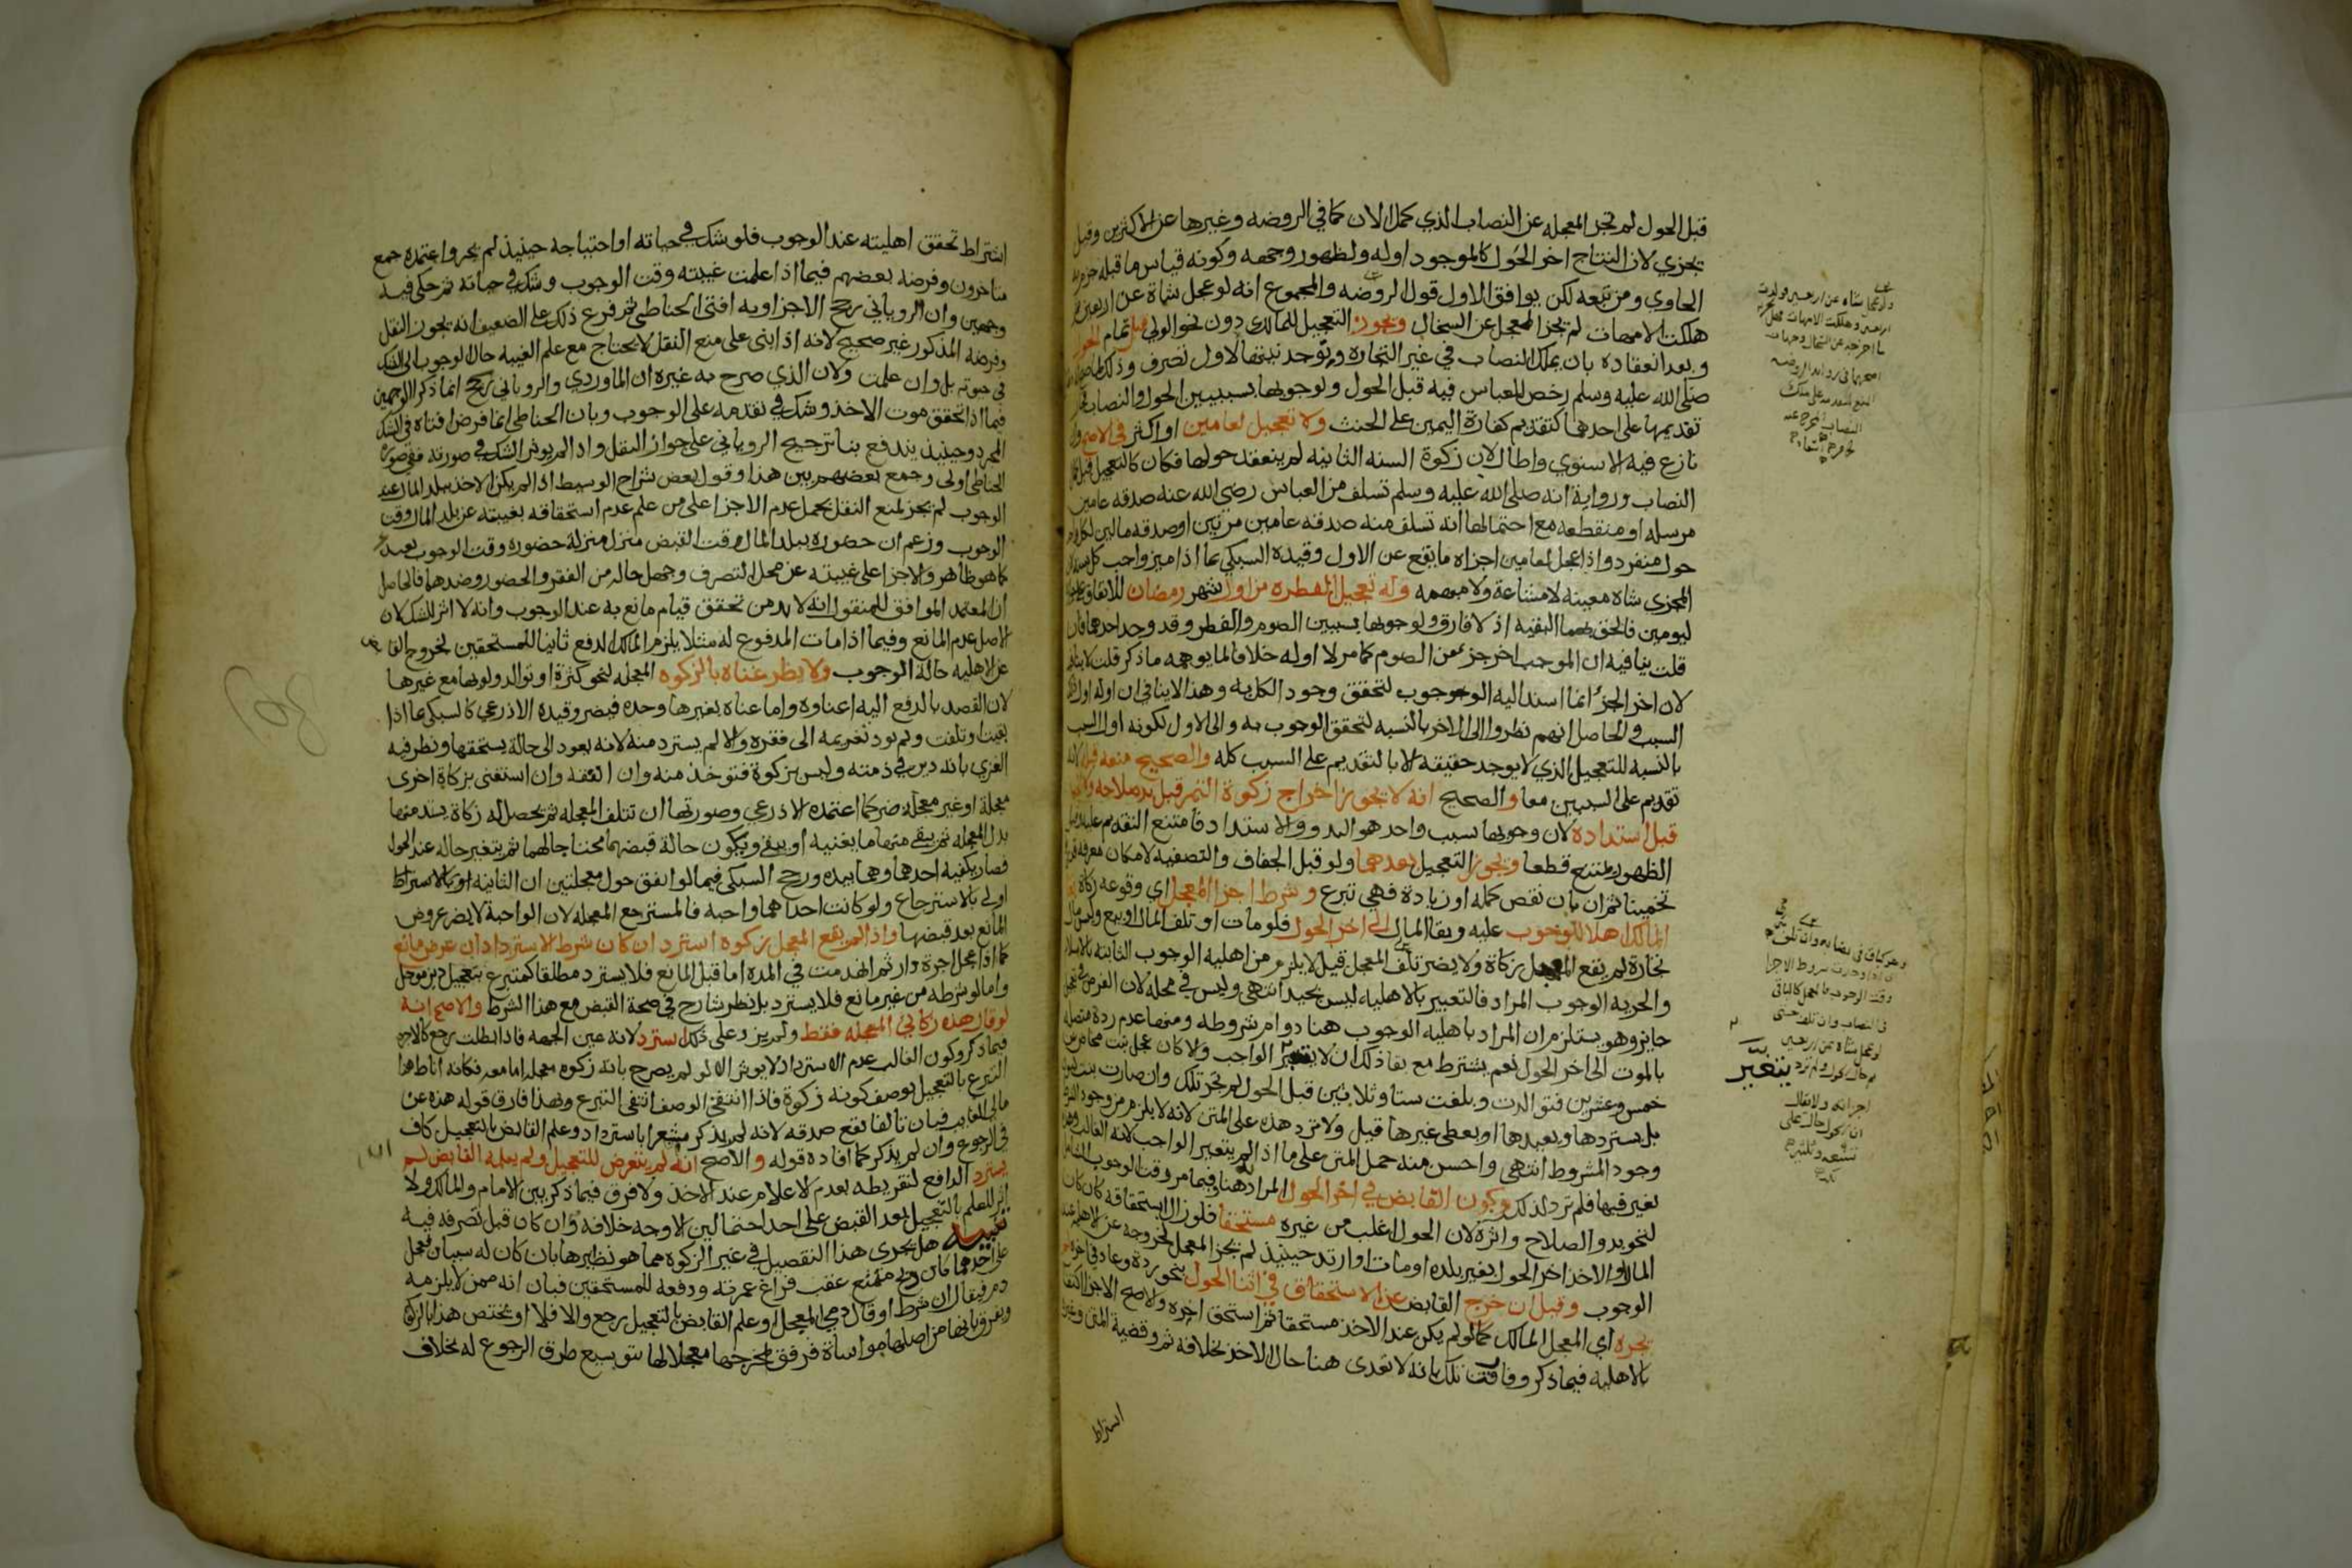 قبل الحول لم تجز المعجله عن النصاب الذي كمل الان كما في الروضه وغيرها عن الاكثرين وقيل
تجزي لان النتاج اخر الحول كالموجود اوله ولظهور وجهه وكونه قياس ما قبله جزم به
الحاوي ومن تبعه لكن يوافق الاول قول الروضه والمجموع انه لو عجل شاة عن اربعين ثم
هلكت الامهات لم يجز المعجل عن السخال ويجوز التعجيل للمالك دون نحو الولي قبل تمام الحول
وبعد انعقاده بان يملك النصاب في غير التجارة وتوجد نيتها الاول تصرف وذلك
صلى الله عليه وسلم رخص للعباس فيه قبل الحول ولوجوبها بسببين الحول والنصاب
تقديمها على احدهما كتقديم كفارة اليمين على الحنث ولا تعجيل لعامين او اكثر في الاصح
نازع فيه الاسنوي واطال لان زكوة السنه الثانيه لم ينعقد حولها فكان كالتعجيل قبل
النصاب ورواية انه صلى الله عليه وسلم تسلف من العباس رضي الله عنه صدقه عامين
مرسله او منقطعه مع احتمالها انه تسلف منه صدقه عامين مرتين او صدقه مالين لكل
حول منفرد واذا عجل لعامين اجزاه ما يقع عن الاول وقيده السبكي بما اذا ميز واجب كل
المجزي شاه معينه لا مشاعة ولا مبهمه وله تعجيل الفطره من اول شهر رمضان للاتفاق
ليومين فالحق بهما البقيه اذ لا فارق ولوجوبها بسببين الصوم والفطر وقد وجد احدهما فان
قلت ينافيه ان الموجب اخر جزء من الصوم كما مر لا اوله خلافا لما يوهمه ما ذكر قلت لا ينافيه
لان اخر الجزء انما اسند اليه الوجوب لتحقق وجود الكل به وهذا لا ينافي ان اوله اول
السبب والحاصل انهم نظروا الى الاخر بالنسبه لتحقق الوجوب به والى الاول لكونه اول السبب
بالنسبه للتعجيل الذي لا يوجد حقيقه الا بالتقديم على السبب كله والصحيح منعه قبله لانه
تقديم على السببين معا والصحيح انه لا يجوز اخراج زكوة الثمر قبل بدو صلاحه ولا الحب
قبل اشتداده لان وجوبها سبب واحد هو البدو والاشتداد فامتنع التقديم عليه
الظهور يمتنع قطعا ويجوز التعجيل بعدهما ولو قبل الجفاف والتصفيه لامكان معرفة
تخمينا ثم ان بان نقص كمله او زيادة فهي تبرع وشرط اجزا المعجل اي وقوعه زكاة
المالك اهلا للوجوب عليه وبقا المال الى اخر الحول فلو مات او تلف المال او بيع وليس مال
تجارة لم يقع المعجل زكاة ولا يضر تلف المعجل قيل لا يلزم من اهليه الوجوب الثابته بالاسلام
والحريه الوجوب المراد فالتعبير بالاهليه ليس بجيد انتهى وليس في محله لان الفرض
جايز وهو يستلزم ان المراد باهليه الوجوب هنا دوام شروطه ومنها عدم ردة متصله
بالموت الى اخر الحول نعم يشترط مع بقا ذلك ان لا يتغير الواجب والا كان عجل بنت مخاض عن
خمس وعشرين فتوالدت وبلغت ستا وثلاثين قبل الحول لم تجز تلك وان صارت بنت لبون
بل يستردها ويعيدها او يعطي غيرها قيل ولا ترد هذه على المتن لانه لا يلزم من وجود الشرط
وجود المشروط انتهى واحسن منه حمل المتن على ما اذا لم يتغير الواجب لانه الغالب
تغير فيها فلم ترد لذلك وكون القابض في اخر الحول المراد به هنا وفيما مر وقت الوجوب الشامل
لنحو بدو الصلاح واثره لان الحول اغلب من غيره مستحقا فلو زال استحقاقه كان كان
المال او الاخذ اخر الحول بغير بلده او مات او ارتد حينيذ لم يجز المعجل لخروجه عن الاهليه عند
الوجوب وقيل ان خرج القابض عن الاستحقاق في اثنا الحول بنحو ردة وعاد في اخره لم
يجزه اي المعجل المالك كما لو لم يكن عند الاخذ مستحقا ثم استحق اخره والاصح الاجزا اكتفا
بالاهليه فيما ذكر وفارقت تلك بانه لا تعدي هنا حال الاخذ بخلافه ثم وقضية المتن
اشتراط
يتغير
اشتراط تحقق اهليته عند الوجوب فلو شك في حياته او احتياجه حينيذ لم يجز واعتمده جمع
متاخرون وفرضه بعضهم فيما اذا علمت غيبته وقت الوجوب وشك في حياته ثم حكى فيه
وجهين وان الروياني رجح الاجزا وبه افتى الحناطي ثم فرع ذلك على الضعيف انه يجوز النقل
وفرضه المذكور غير صحيح لانه اذا ابتني على منع النقل لا يحتاج مع علم الغيبه حال الوجوب الى الشك
في حيوته بل وان علمت ولان الذي صرح به غيره ان الماوردي والروياني رجح انما ذكرا الوجهين
فيما اذا تحقق موت الاخذ وشك في تقدمه على الوجوب وبان الحناطي انما فرض افتاه في الشك
المجرد وحينيذ يندفع بنا ترجيح الروياني على جواز النقل واذا لم يوثر الشك في صورته ففي صورة
الحناطي اولى وجمع بعضهم بين هذا وقول بعض شراح الوسيط اذا لم يكن الاخذ ببلد المال عند
الوجوب لم يجز لمنع النقل بحمل عدم الاجزا على من علم عدم استحقاقه بغيبته عن بلد المال وقت
الوجوب وزعم ان حضوره ببلد المال وقت القبض منزل منزلة حضوره وقت الوجوب بعيد
كما هو ظاهر والاجزا على غيبته عن محل التصرف وجهل حاله من الفقر والحضور وضدهما فالحاصل
ان المعتمد الموافق للمنقول انه لا بد من تحقق قيام مانع به عند الوجوب وانه لا اثر للشك لان
الاصل عدم المانع وفيما اذا مات المدفوع له مثلا يلزم المالك الدفع ثانيا للمستحقين لخروج القابض
عن الاهليه حالة الوجوب ولا يضر غناه بالزكوه المعجله لنحو كثرة او توالد ولو بها مع غيرها
لان القصد بالدفع اليه اغناوه واما غناه بغيرها وحده فيضر وقيده الاذرعي كالسبكي بما اذا
بقيت او تلفت ولم يود تغريمه الى فقره والا لم يسترد منه لانه يعود الى حالة يستحقها ونظر فيه
الغزي بانه دين في ذمته وليس بزكوة فتوخذ منه وان افتقر وان استغنى بزكاة اخرى
معجلة او غير معجله ضر كما اعتمده الاذرعي وصورتها ان تتلف المعجله ثم يحصل له زكاة يسد منها
بدل المعجله ثم يبقى منها ما يغنيه او يبقى ويكون حالة قبضهما محتاجا لهما ثم يتغير حاله عند الحول
فصار يكفيه احدهما وهما بيده ورجح السبكي فيما لو اتفق حول معجلتين ان الثانيه
اولى بالاسترجاع ولو كانت احداهما واجبه فالمسترجع المعجله لان الواجبة لا يضر عروض
المانع بعد قبضها واذا لم يقع المعجل زكوة استرد ان كان شرط الاسترداد ان عرض مانع
كما اذا عجل اجرة دار ثم انهدمت في المدة اما قبل المانع فلا يسترد مطلقا كمتبرع بتعجيل دين موجل
واما لو شرطه من غير مانع فلا يسترد بل نظر شارح في صحة القبض مع هذا الشرط والاصح انه
لو قال هذه زكاتي المعجله فقط ولم يزد على ذلك استرد لانه عين الجهه فاذا بطلت رجع كالاجره
فيما ذكر وكون الغالب عدم الاسترداد لا يوثر الا لو لم يصرح بانه زكوة معجله اما معه فكانه اناط هذا
التبرع بالتعجيل بوصف كونه زكوة فاذا انتفى الوصف انتفى التبرع وبهذا فارق قوله هذه عن
مالي الغايب فبان تالفا تقع صدقه لانه لم يذكر مشعرا باسترداد وعلم القابض بالتعجيل كاف
في الرجوع وان لم يذكر كما افاده قوله والاصح انه لم يتعرض للتعجيل ولم يعلمه القابض لم
يسترد الدافع لتفريطه بعدم الاعلام عند الاخذ ولا فرق فيما ذكر بين الامام والمالك ولا
اثر للعلم بالتعجيل بعد القبض على احد احتمالين الاوجه خلافه وان كان قبل تصرفه فيه
تنبيه هل يجري هذا التفصيل في غير الزكوه مما هو نظيرها بان كان له سببان فعجل
على احدهما كان ذبح متمتع عقب فراغ عمرته ودفعه للمستحقين فبان انه ممن لا يلزمه
دم فيقال ان شرط او قال دمي المعجل او علم القابض بالتعجيل رجع والا فلا او يختص هذا بالزكاة
ويفرق بانها من اصلها مواساة فرفق بمخرجها معجلا لها بتوسيع طرق الرجوع له بخلاف